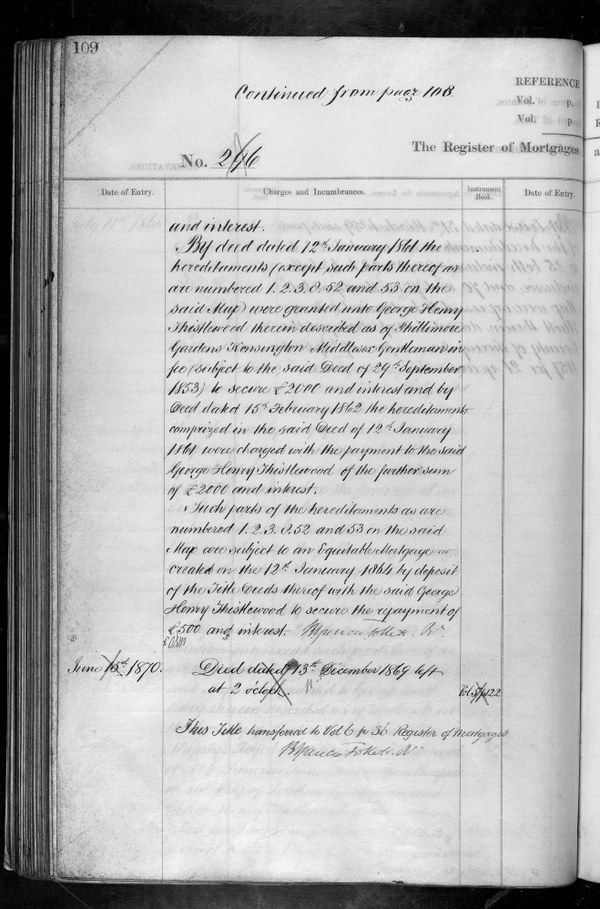 109
Continued from page 108
REFERENCE
Vol. p.
Vol. p.
No. 296
The Register of Mortgages
Date of Entry.
Charges and Incumbrances.
Instrument Book.
Date of Entry.
and interest.
By deed dated 12th January 1861 the
hereditaments (except such parts thereof as
are numbered 1. 2. 3. 8. 52 and 53 on the
said Map) were granted unto George Henry
Thistlewood therein described as of Phillimore
Gardens Kensington Middlesex Gentleman in
fee (subject to the said Deed of 29th September
1853) to secure £2000 and interest and by
Deed dated 15th February 1862 the hereditaments
comprized in the said Deed of 12th January
1861 were charged with the payment to the said
George Henry Thistlewood of the further sum
of £2000 and interest.
Such parts of the hereditaments as are
numbered 1. 2. 3. 8. 52 and 53 on the said
Map are subject to an Equitable Mortgage
created on the 12th January 1864 by deposit
of the Title Deeds thereof with the said George
Henry Thistlewood to secure the repayment of
£500 and interest.
June 15th 1870.
Deed dated 13th December 1869 left
at 2 o'clock.
Vol. p 122
This Title transferred to Vol 6 p 36 Register of Mortgages